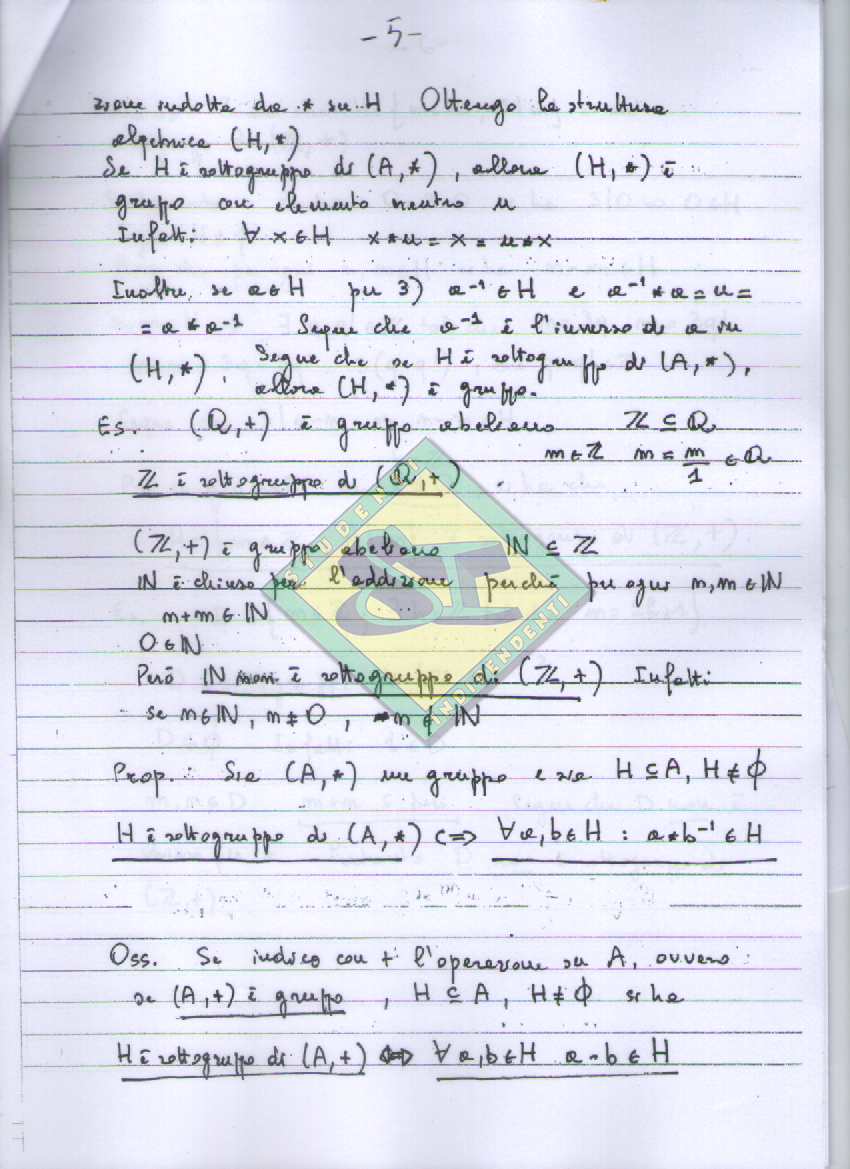 -5-
zione indotta da * su H Ottengo la struttura
algebrica (H,*)
Se H è sottogruppo di (A,*), allora (H,*) è
gruppo con elemento neutro u
Infatti: ∀ x∈H x*u = x = u*x
Inoltre, se a∈H per 3) a⁻¹∈H e a⁻¹*a=u=
= a*a⁻¹ Segue che a⁻¹ è l'inverso di a in
(H,*). Segue che se H è sottogruppo di (A,*),
allora (H,*) è gruppo.
Es. (Q,+) è gruppo abeliano ℤ ⊆ Q
m∈ℤ m = m/1 ∈ Q
ℤ è sottogruppo di (Q,+)
(ℤ,+) è gruppo abeliano ℕ ⊆ ℤ
ℕ è chiuso per l'addizione perché per ogni n,m∈ℕ
n+m∈ℕ
0∈ℕ
Però ℕ non è sottogruppo di (ℤ,+) Infatti
se n∈ℕ, n≠0, -n∉ℕ
Prop.: Sia (A,*) un gruppo e sia H⊆A, H≠∅
H è sottogruppo di (A,*) <=> ∀a,b∈H : a*b⁻¹∈H
Oss. Se indico con + l'operazione su A, ovvero
se (A,+) è gruppo, H⊆A, H≠∅ si ha
H è sottogruppo di (A,+) <=> ∀a,b∈H a-b∈H
STUDENTI
SI
INDIPENDENTI